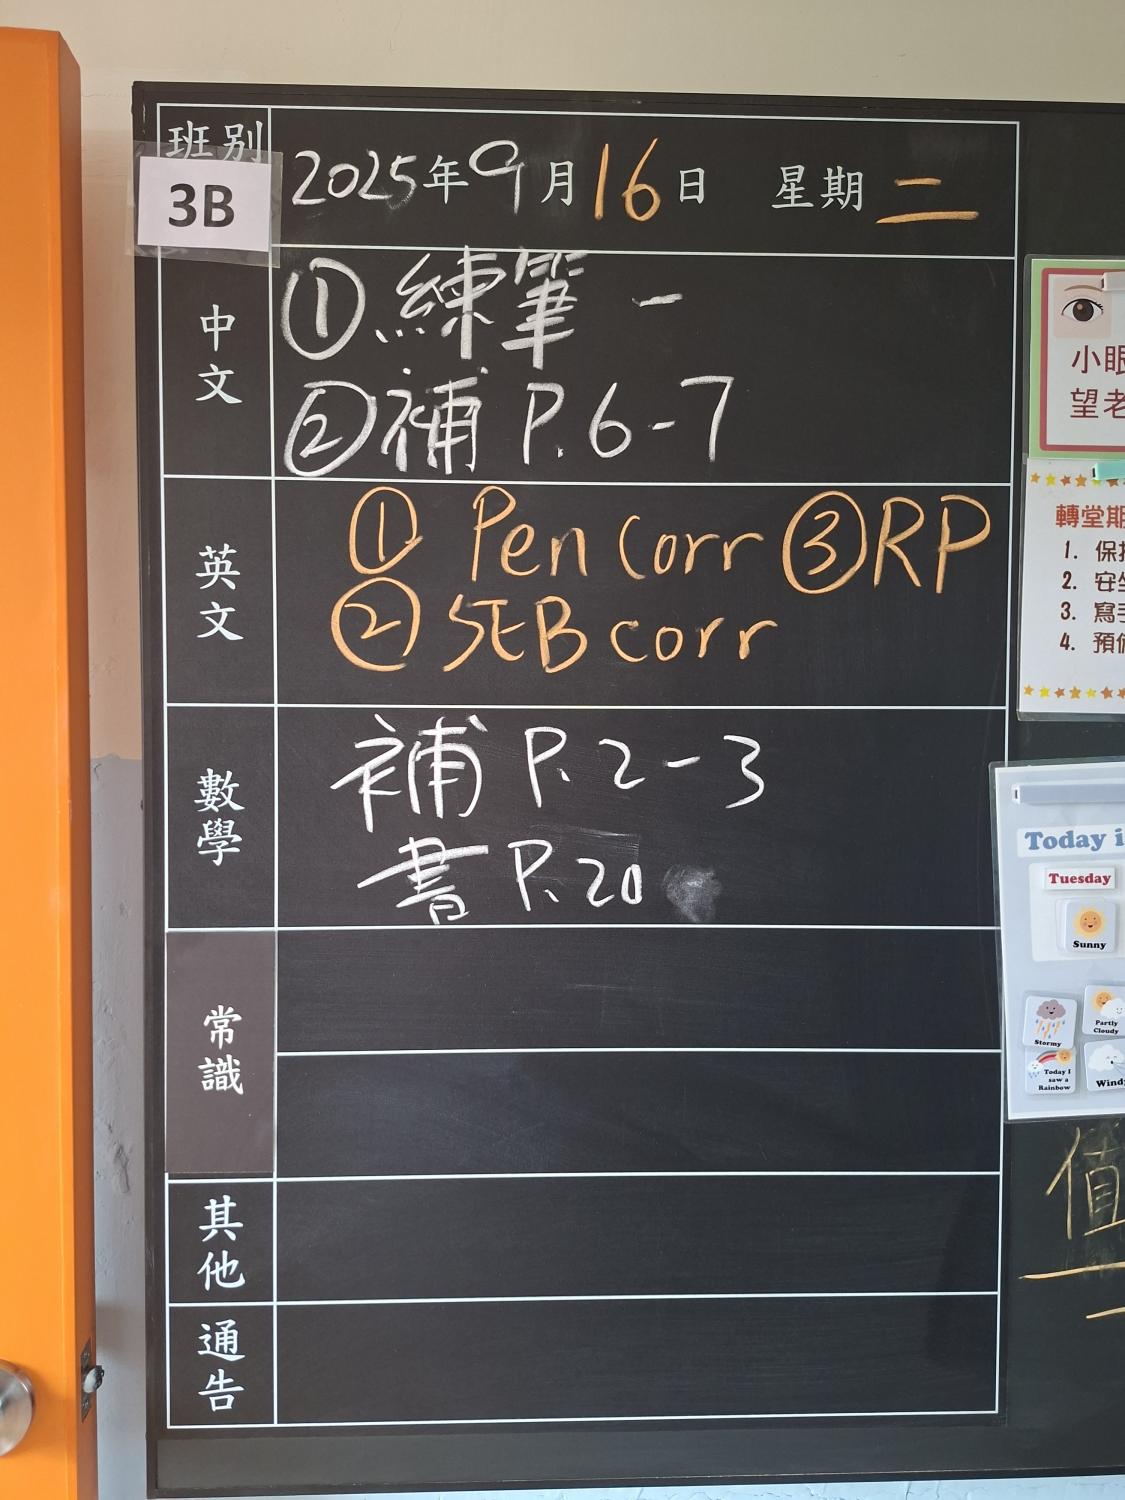 班別
3B
2025年9月16日 星期二
中文
①練筆一
②補 P.6-7
英文
① Pen Corr ③ RP
② SEB corr
數學
補 P.2-3
書 P.20
常識
其他
通告
小眼
望老
轉堂期
1. 保持
2. 安坐
3. 寫手
4. 預備
Today i
Tuesday
Sunny
Stormy
Partly
Cloudy
Today I
saw a
Rainbow
Windy
值